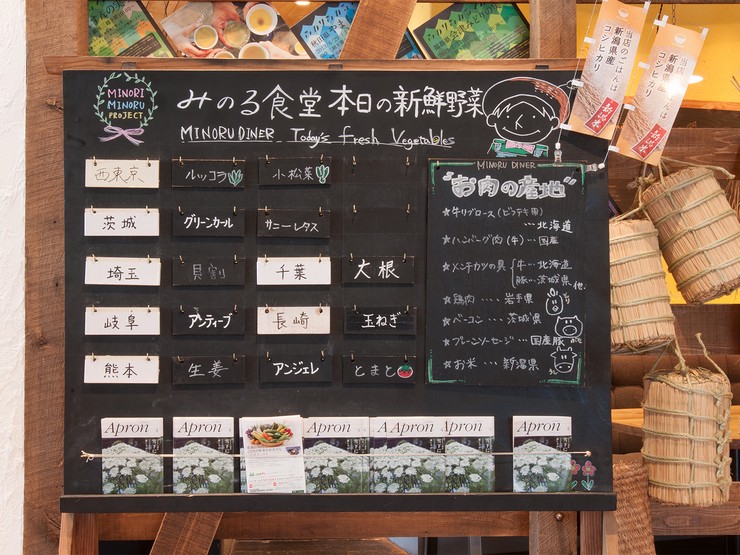 MINORI
MINORU
PROJECT
みのる食堂 本日の新鮮野菜
MINORU DINER Today's fresh Vegetables
西東京 ルッコラ 小松菜
茨城 グリーンカール サニーレタス
埼玉 貝割 千葉 大根
岐阜 アンティーブ 長崎 玉ねぎ
熊本 生姜 アンジェレ とまと
MINORU DINER
"お肉の産地"
★牛リブロース(ビフテキ用)
…北海道
★ハンバーグ肉(牛)…国産
★メンチカツの具 牛…北海道
豚…茨城県 他.
★鶏肉 …. 岩手県
★ベーコン …. 茨城県
★プレーンソーセージ … 国産豚
★お米 …. 新潟県
Apron
Apron
Apron
Apron
Apron
Apron
Apron
当店のごはんは
新潟県産
コシヒカリ
新潟米
当店のごはんは
新潟県産
コシヒカリ
新潟米